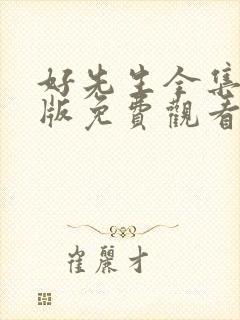 好先生全集
版免費觀看
崔麗才